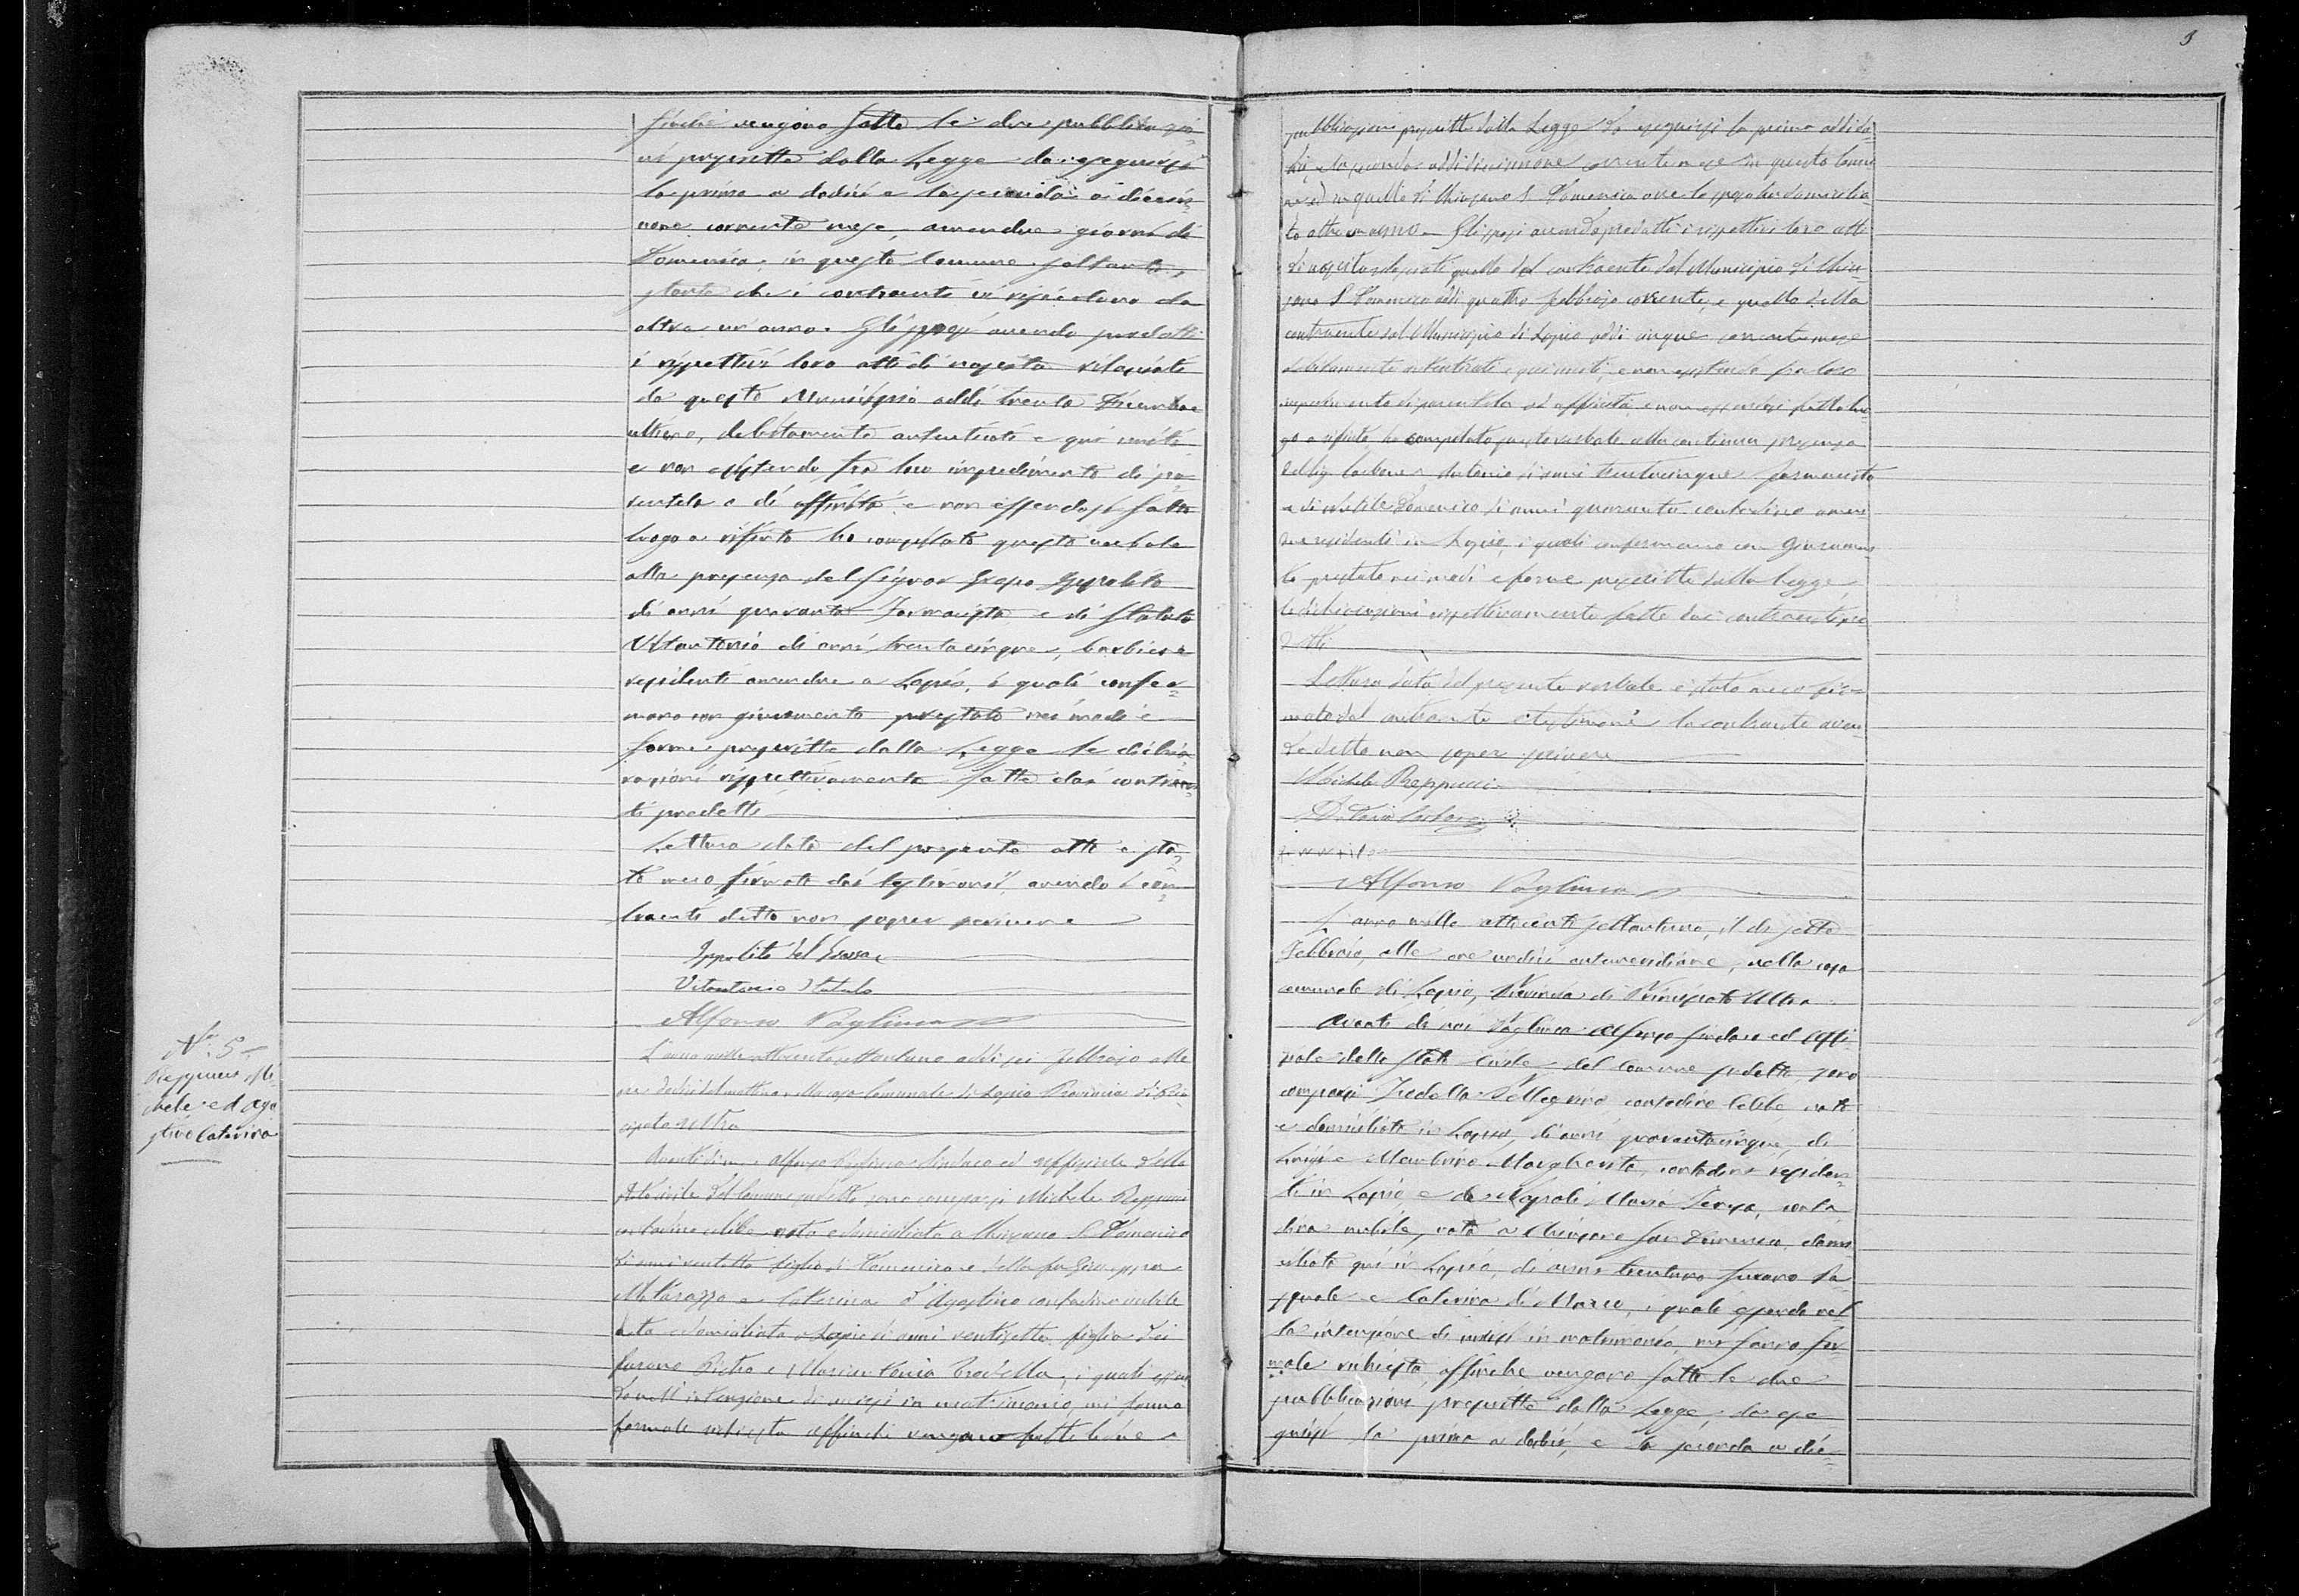 finché vengono fatte le due pubblicazio=
ni prescritte dalla Legge da eseguirsi
la prima a dodici e la seconda a diecin=
nove corrente mese, amendue giorni di
Domenica, in questo Comune soltanto,
stante che i contraenti vi risiedono da
oltre un anno. Gli sposi avendo prodotti
i rispettivi loro atti di nascita rilasciati
da questo Municipio addì trenta Decembre
ultimo, debitamente autenticati e qui uniti
e non esistendo fra loro impedimento di pa=
rentela o di affinità e non essendosi fatto
luogo a rifiuto ho compilato questo verbale
alla presenza del Signor Ippolito
di anni quaranta Farmacista e di Statuto
Vitantonio di anni trentacinque, barbiere
residenti amendue a Lapio, i quali confer=
mano con giuramento prestato nei modi e
forme prescritte dalla Legge le dichia=
razioni rispettivamente fatte dai contraen=
ti predetti
Lettura data del presente atto è sta=
to meco firmato dai testimoni, avendo i con=
traenti detto non sapere scrivere
Ippolito del
Vitantonio Statuto
Alfonso Pagliuca
N.° 5
Reppucci Mi=
chele ed Ago
stino Caterina
L'anno mille ottocento settantuno addì sei Febbrajo alle
ore dodici del mattino nella casa Comunale di Lapio Provincia di Prin
cipato Ultra
Avanti di me Alfonso Pagliuca Sindaco ed Uffiziale dello
Stato civile del Comune suddetto sono comparsi Michele Reppucci
contadino celibe nato e domiciliato a Chiusano S. Domenico
di anni ventotto figlio di Domenico e della fu Giuseppa
Matarazzo e Caterina d'Agostino contadina nubile
nata e domiciliata a Lapio di anni ventisette figlia dei
furono Pietro e Mariantonia Trodella, i quali essen
do nell'intenzione di unirsi in matrimonio, mi fanno
formale richiesta affinchè vengano fatte le due
3
pubblicazioni prescritte dalla Legge da eseguirsi la prima addì do
dici, la seconda addì diecinnove corrente mese in questo Comu
ne ed in quello di Chiusano S. Domenico ove lo sposo ha domicilia
to oltre un anno. Gli sposi avendo prodotti i rispettivi loro atti
di nascita rilasciati quello del contraente dal Municipio di Chiu
sano S. Domenico addì quattro febbrajo corrente, e quello della
contraente dal Municipio di Lapio addì cinque corrente mese
debitamente autenticati e qui uniti, e non esistendo fra loro
impedimento di parentela od affinità, e non essendosi fatto luo
go a rifiuto, ho compilato questo verbale alla continua presenza
del Sig. Carbone Antonio di anni trentacinque farmacista
e di Domenico di anni quaranta contadino amen
due residenti in Lapio, i quali confermano con giuramen
to prestato nei modi e forme prescritte dalla Legge,
le dichiarazioni rispettivamente fatte dai contraenti pre
detti
Lettura data del presente verbale è stato meco fir=
mato dal contraente e testimoni la contraente aven
do detto non sapere scrivere
Michele Reppucci
Alfonso Pagliuca
L'anno mille ottocento settantuno, il dì sette
Febbraio, alle ore undici antimeridiane, nella casa
comunale di Lapio, Provincia di Principato Ultra
Avanti di noi Pagliuca Alfonso Sindaco ed Uffi=
ziale dello Stato Civile, del Comune sudetto, sono
comparsi Trodella Pellegrino contadino celibe nato
e domiciliato in Lapio, di anni quarantacinque, di
Luigi e Margherita, contadini residen=
ti in Lapio e de Napoli Maria Teresa, conta
dina nubile, nata a Chiusano San Domenico, domi
ciliata quì in Lapio, di anni trentuno furono Pa
squale e Caterina di Marco, i quali essendo nel
la intenzione di unirsi in matrimonio, mi fanno for
male richiesta affinche vengano fatte le due
pubblicazioni prescritte dalla Legge, da ese
guirsi la prima a dodici, e la seconda a die=